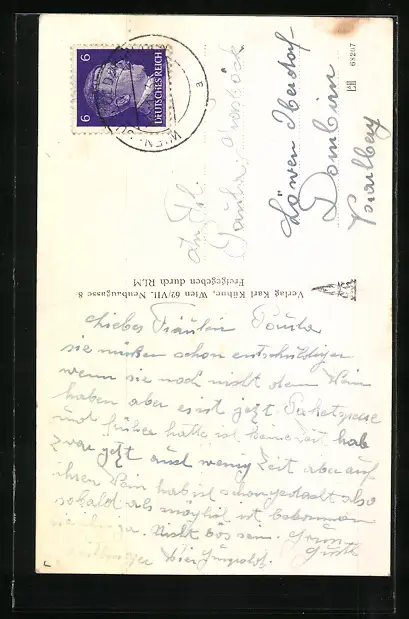 6 6
DEUTSCHES REICH
WIEN
a
68267
An Frl.
Paula
Löwen Oberdorf
Dornbirn
Vorarlberg
Verlag Karl Kühne, Wien 62/VII. Neubaugasse 8
Freigegeben durch RLM
Liebes Fräulein Paula
sie müssen schon entschuldigen
wenn sie noch nicht den Wein
haben aber es ist jetzt Paketsperre
und früher hatte ich keine Zeit, hab
zwar jetzt auch wenig Zeit aber auf
ihren Wein hab ich schon gedacht also
sobald als möglich ist, bekommen
sie ihn ja. Nicht bös sein. Gruss
Gustl